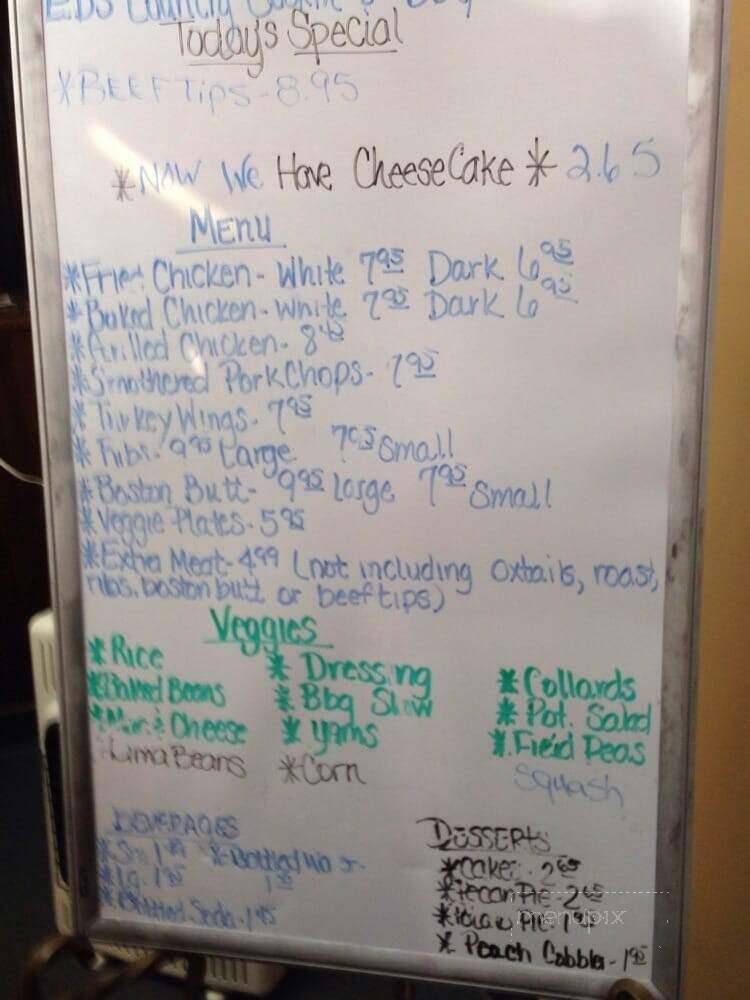 EDS Country Cookin
Today's Special
*BEEF Tips - 8.95
*NOW We Have CheeseCake * 2.65
Menu
*Fried Chicken - White 7.95 Dark 6.95
*Baked Chicken - White 7.95 Dark 6.95
*Grilled Chicken - 8
*Smothered PorkChops - 7.95
*Turkey Wings - 7.95
*Ribs - 9.95 Large 7.95 Small
*Boston Butt - 9.95 Large 7.95 Small
*Veggie Plates - 5.95
*Extra Meat - 4.99 (not including oxtails, roast,
ribs, boston butt or beef tips)
Veggies
*Rice *Dressing *Collards
*Baked Beans *Bbq Slaw *Pot. Salad
*Mac & Cheese *Yams *Field Peas
Lima Beans *Corn Squash
BEVERAGES
*Sm. 1 *Bottled Wa r.
*Lg. 1.95 1
*Bottled Soda - 1.95
DESSERTS
*Cakes - 2.65
*Pecan Pie - 2.65
Pie - 1
* Peach Cobbler - 1.95
menupix